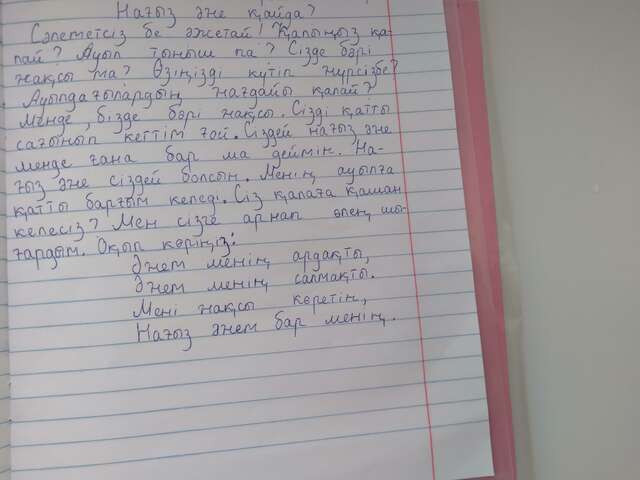 Нағыз әже қайда?
Сәлеметсіз бе әжетай! Қалыңыз қа-
лай? Ауыл тыныш па? Сізде бәрі
жақсы ма? Өзіңізді күтіп жүрсізбе?
Ауылдағылардың жағдайы қалай?
Менде, бізде бәрі жақсы. Сізді қатты
сағынып кеттім ғой. Сіздей нағыз әже
менде ғана бар ма деймін. На-
ғыз әже сіздей болсын. Менің ауылға
қатты барғым келеді. Сіз қалаға қашан
келесіз? Мен сізге арнап өлең шы-
ғардым. Оқып көріңіз:
Әжем менің ардақты,
Әжем менің салмақты.
Мені жақсы көретін,
Нағыз әжем бар менің.